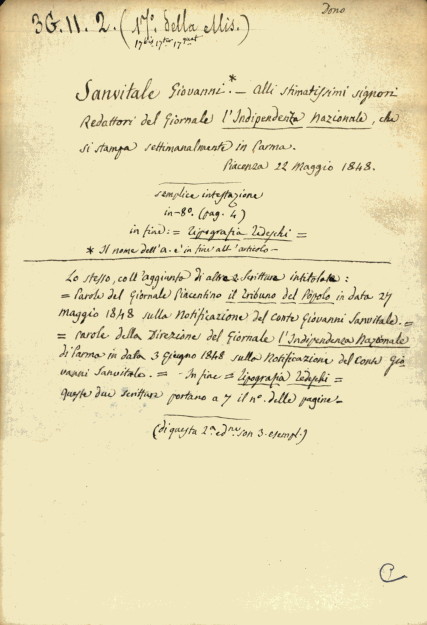 Dono
3G. 11. 2. (17º. della Mis.)
17bis 17ter 17quat
Sanvitale Giovanni.* — Alli stimatissimi signori
Redattori del Giornale l'Indipendenza Nazionale, che
si stampa settimanalmente in Parma.
Piacenza 22 Maggio 1848.
semplice intestazione
in-8º. (pag. 4)
in fine: = Tipografia Tedeschi =
* Il nome dell'a. è in fine all'articolo —
Lo stesso, coll'aggiunta di altre 2 scritture intitolate:
= Parole del Giornale Piacentino il Tribuno del Popolo in data 27
Maggio 1848 sulla Notificazione del Conte Giovanni Sanvitale. =
= Parole della Direzione del Giornale l'Indipendenza Nazionale
di Parma in data 3 Giugno 1848 sulla Notificazione del Conte Gio
vanni Sanvitale. = - In fine = Tipografia Tedeschi =
queste due scritture portano a 7 il nº. delle pagine –
(di questa 2ª. edne son 3. esempl.)